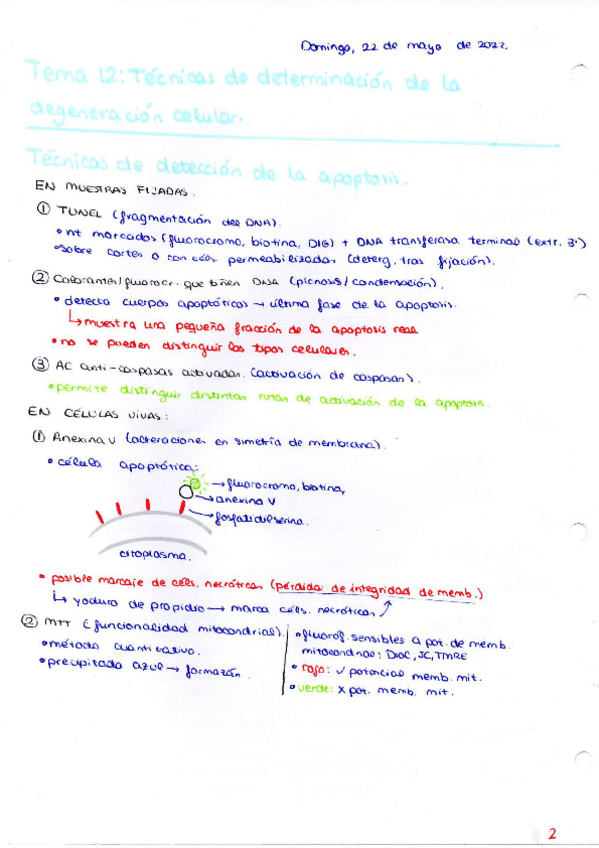 Domingo, 22 de mayo de 2022.
Tema 12: Técnicas de determinación de la
degeneración celular.
Técnicas de detección de la apoptosis.
EN MUESTRAS FIJADAS.
① TUNEL (fragmentación del DNA).
• nt marcados (fluorocromo, biotina, DIG) + DNA transferasa terminal (extr. 3')
• sobre cortes o con céls permeabilizadas (deterg. tras fijación).
② Colorantes/fluorocr. que tiñen DNA (picnosis/condensación).
• detecta cuerpos apoptóticos → última fase de la apoptosis.
↳ muestra una pequeña fracción de la apoptosis real
• no se pueden distinguir los tipos celulares.
③ AC anti-caspasas activadas. (activación de caspasas).
• permite distinguir distintas rutas de activación de la apoptosis.
EN CÉLULAS VIVAS:
① Anexina V (alteraciones en simetría de membrana).
• célula apoptótica:
→ fluorocromo, biotina,
→ anexina V
→ fosfatidilserina.
citoplasma.
• posible marcaje de céls. necróticas (pérdida de integridad de memb.)
↳ yoduro de propidio → marca céls. necróticas
② MTT (funcionalidad mitocondrial).
• método cuantitativo.
• precipitado azul → formazán.
• fluorof. sensibles a pot. de memb.
mitocondrias: DiOC, JC, TMRE
• rojo: ✓ potencial memb. mit.
• verde: x pot. memb. mit.
2